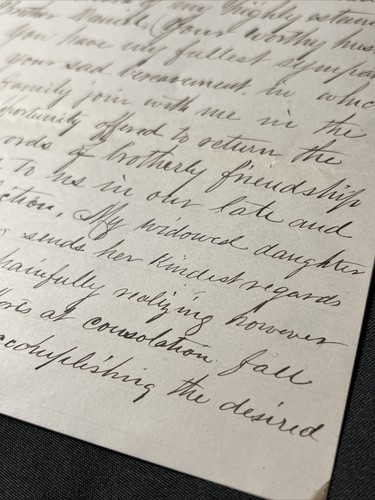 of my highly esteem
Brother Daniels (your worthy hus
you have my fullest sympa
your sad bereavement in whic
family join with me in the
portunity offered to return the
ords of brotherly friendship
to us in our late and
ction. My widowed daughter
sends her kindest regards
painfully realizing however
fforts at consolation fall
accomplishing the desired